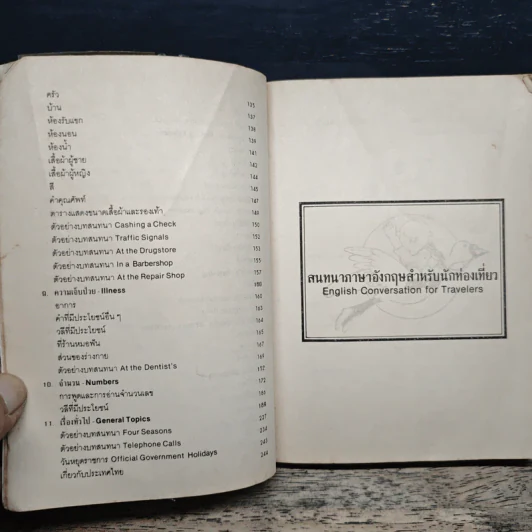 ครัว 135
บ้าน 137
ห้องรับแขก 138
ห้องนอน 139
ห้องน้ำ 141
เสื้อผ้าผู้ชาย 142
เสื้อผ้าผู้หญิง 144
สี 145
คำคุณศัพท์ 147
ตารางแสดงขนาดเสื้อผ้าและรองเท้า 148
ตัวอย่างบทสนทนา Cashing a Check 150
ตัวอย่างบทสนทนา Traffic Signals 152
ตัวอย่างบทสนทนา At the Drugstore 153
ตัวอย่างบทสนทนา In a Barbershop 155
ตัวอย่างบทสนทนา At the Repair Shop 157
9. ความเจ็บป่วย - Illness
อาการ 160
คำที่มีประโยชน์อื่น ๆ 161
วลีที่มีประโยชน์ 163
ที่ร้านหมอฟัน 164
ส่วนของร่างกาย 166
ตัวอย่างบทสนทนา At the Dentist's
10. จำนวน - Numbers 172
การพูดและการอ่านจำนวนเลข
วลีที่มีประโยชน์
11. เรื่องทั่วไป - General Topics 237
ตัวอย่างบทสนทนา Four Seasons
ตัวอย่างบทสนทนา Telephone Calls
วันหยุดราชการ Official Government Holidays
เกี่ยวกับประเทศไทย
สนทนาภาษาอังกฤษสำหรับนักท่องเที่ยว
English Conversation for Travelers